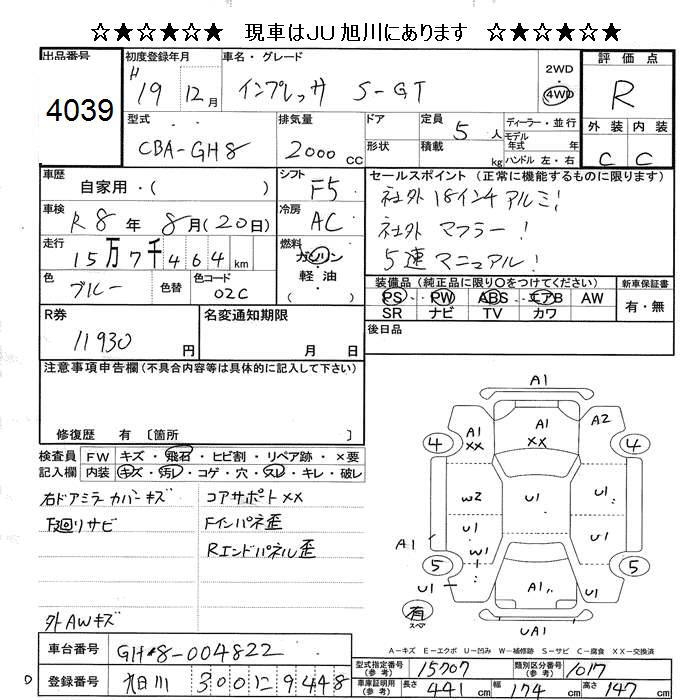 ☆★☆★☆★ 現車はJU旭川にあります ☆★☆★☆★
出品番号
4039
初度登録年月
H19 12月
車名・グレード
インプレッサ S-GT
2WD
4WD
評価点
R
外装 内装
C C
型式
CBA-GH8
排気量
2000cc
ドア
形状
定員
5人
積載
kg
ディーラー・並行
モデル年式 年
ハンドル 左・右
車歴
自家用・( )
シフト
F5
車検
R8年8月(20日)
冷房
AC
走行
15万7千464km
燃料
ガソリン
軽・油
( )
色
ブルー
色替
色コード
02C
セールスポイント(正常に機能するものに限ります)
社外18インチアルミ!
社外マフラー!
5速マニュアル!
装備品(純正品に限り○をつけてください)
PS PW ABS エアB AW
SR ナビ TV カワ
新車保証書
有・無
R券
11930円
名変通知期限
月 日
後日品
注意事項申告欄(不具合内容等は具体的に記入して下さい)
修復歴 有 〔箇所 〕
検査員記入欄
FW キズ・飛石・ヒビ割・リペア跡・×要
内装 キズ・汚レ・コゲ・穴・スレ・キレ・破レ
右ドアミラーカバーキズ
下廻リサビ
外AWキズ
コアサポートXX
Fインパネ歪
Rエンドパネル歪
A1
A1 XX
A1 XX
A2
4
4
W2
U1
U1
U1
W1
U1
A1
5
5
U1
A1
U1
有
スペア
UA1
A-キズ E-エクボ U-凹み W-補修跡 S-サビ C-腐食 XX-交換済
車台番号
GH8-004822
登録番号
旭川 300 に 9448
型式指定番号(参考)
15707
類別区分番号(参考)
1017
車庫証明用(参考)
長さ 441cm 幅 174cm 高さ 147cm